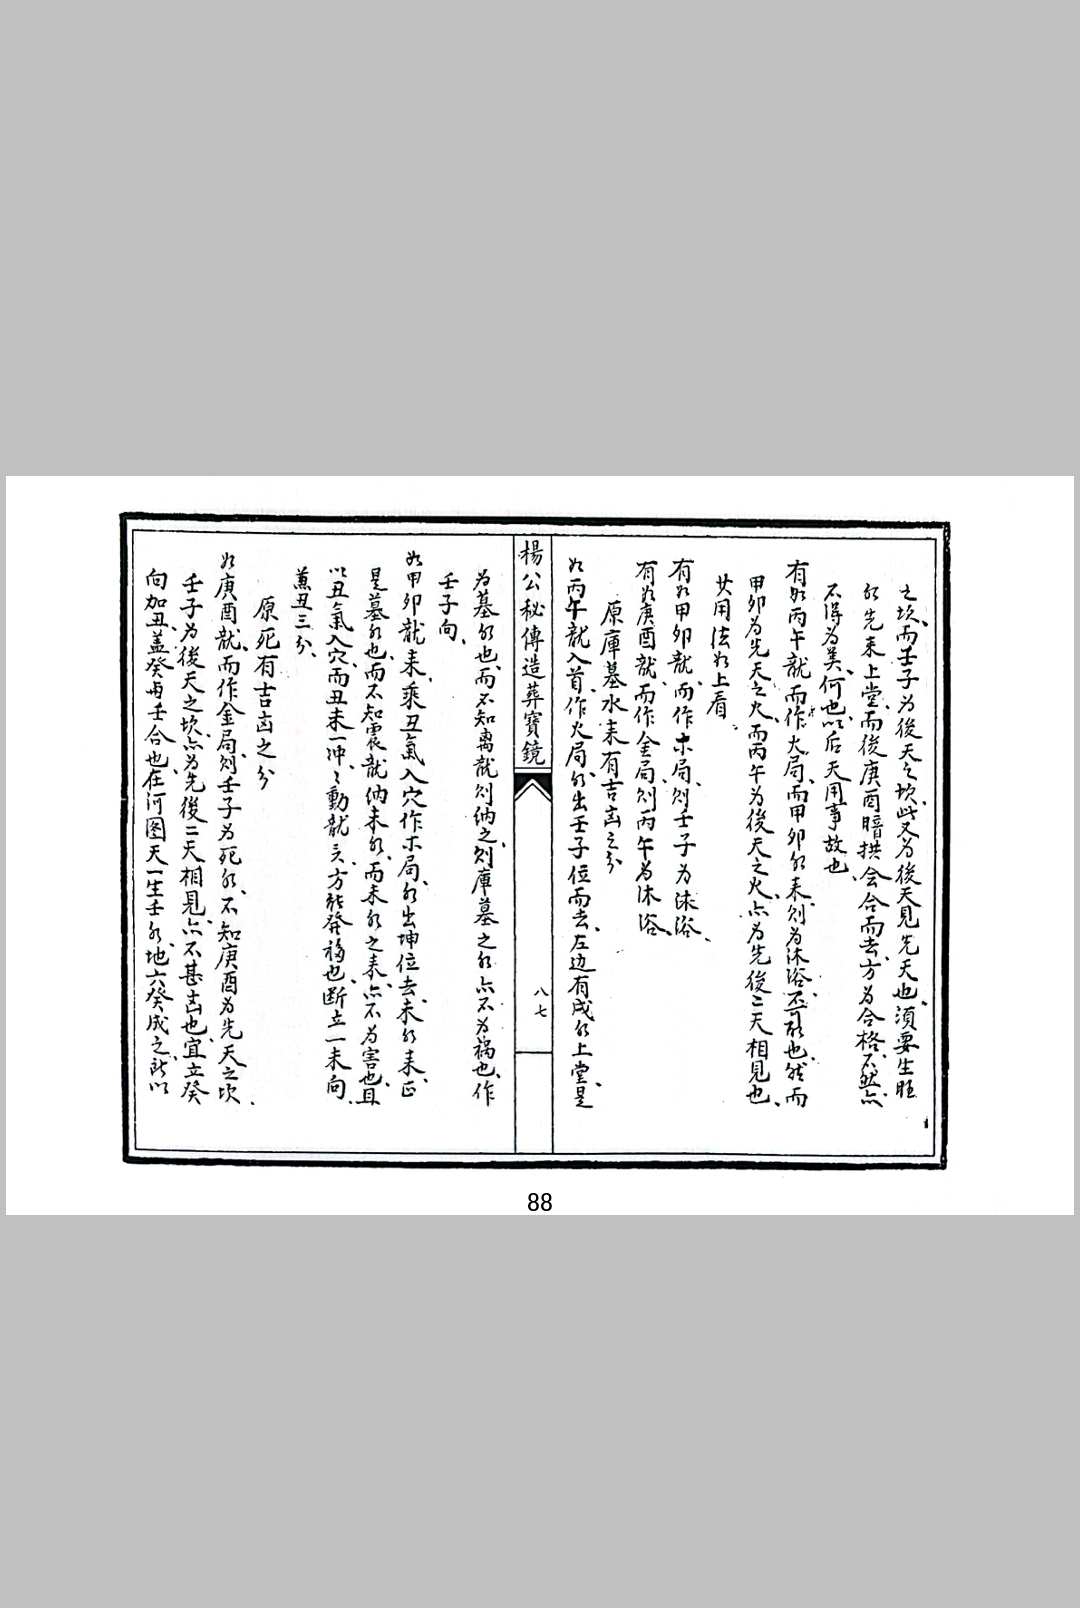 之坎、而壬子為後天之坎、此又為後天見先天也、須要生旺
水先来上堂、而後庚酉暗拱、会合而去、方為合格、不然亦
不得為美、何也、以后天用事故也、
有如丙午龍、而作火局、而甲卯水来、则為沐浴、不可放也、然而
甲卯為先天之火、而丙午為後天之火、亦為先後二天相見也、
其用法如上看、
有如甲卯龍、而作木局、则壬子为沐浴、
有如庚酉龍、而作金局、则丙午為沐浴、
原庫墓水来有吉凶之分
如丙午龍入首、作火局、水出壬子位而去、左边有戌水上堂、是
楊公秘傳造葬寶鏡
八七
为墓水也、而不知离龍则纳之、则庫墓之水亦不为祸也、作
壬子向、
如甲卯龍来、乘丑氣入穴、作木局、水出坤位去、未水来、正
是墓水也、而不知震龍纳未水、而未水之来、亦不为害也、且
以丑氣入穴、而丑未一冲、冲動龍气、方能發福也、断立一未向、
兼丑三分、
原死有吉凶之分
如庚酉龍、而作金局、则壬子为死水、不知庚酉为先天之坎、
壬子为後天之坎、亦为先後二天相見、亦不甚凶也、宜立癸
向加丑、盖癸與壬合也、在河图天一生壬水、地六癸成之、所以
88